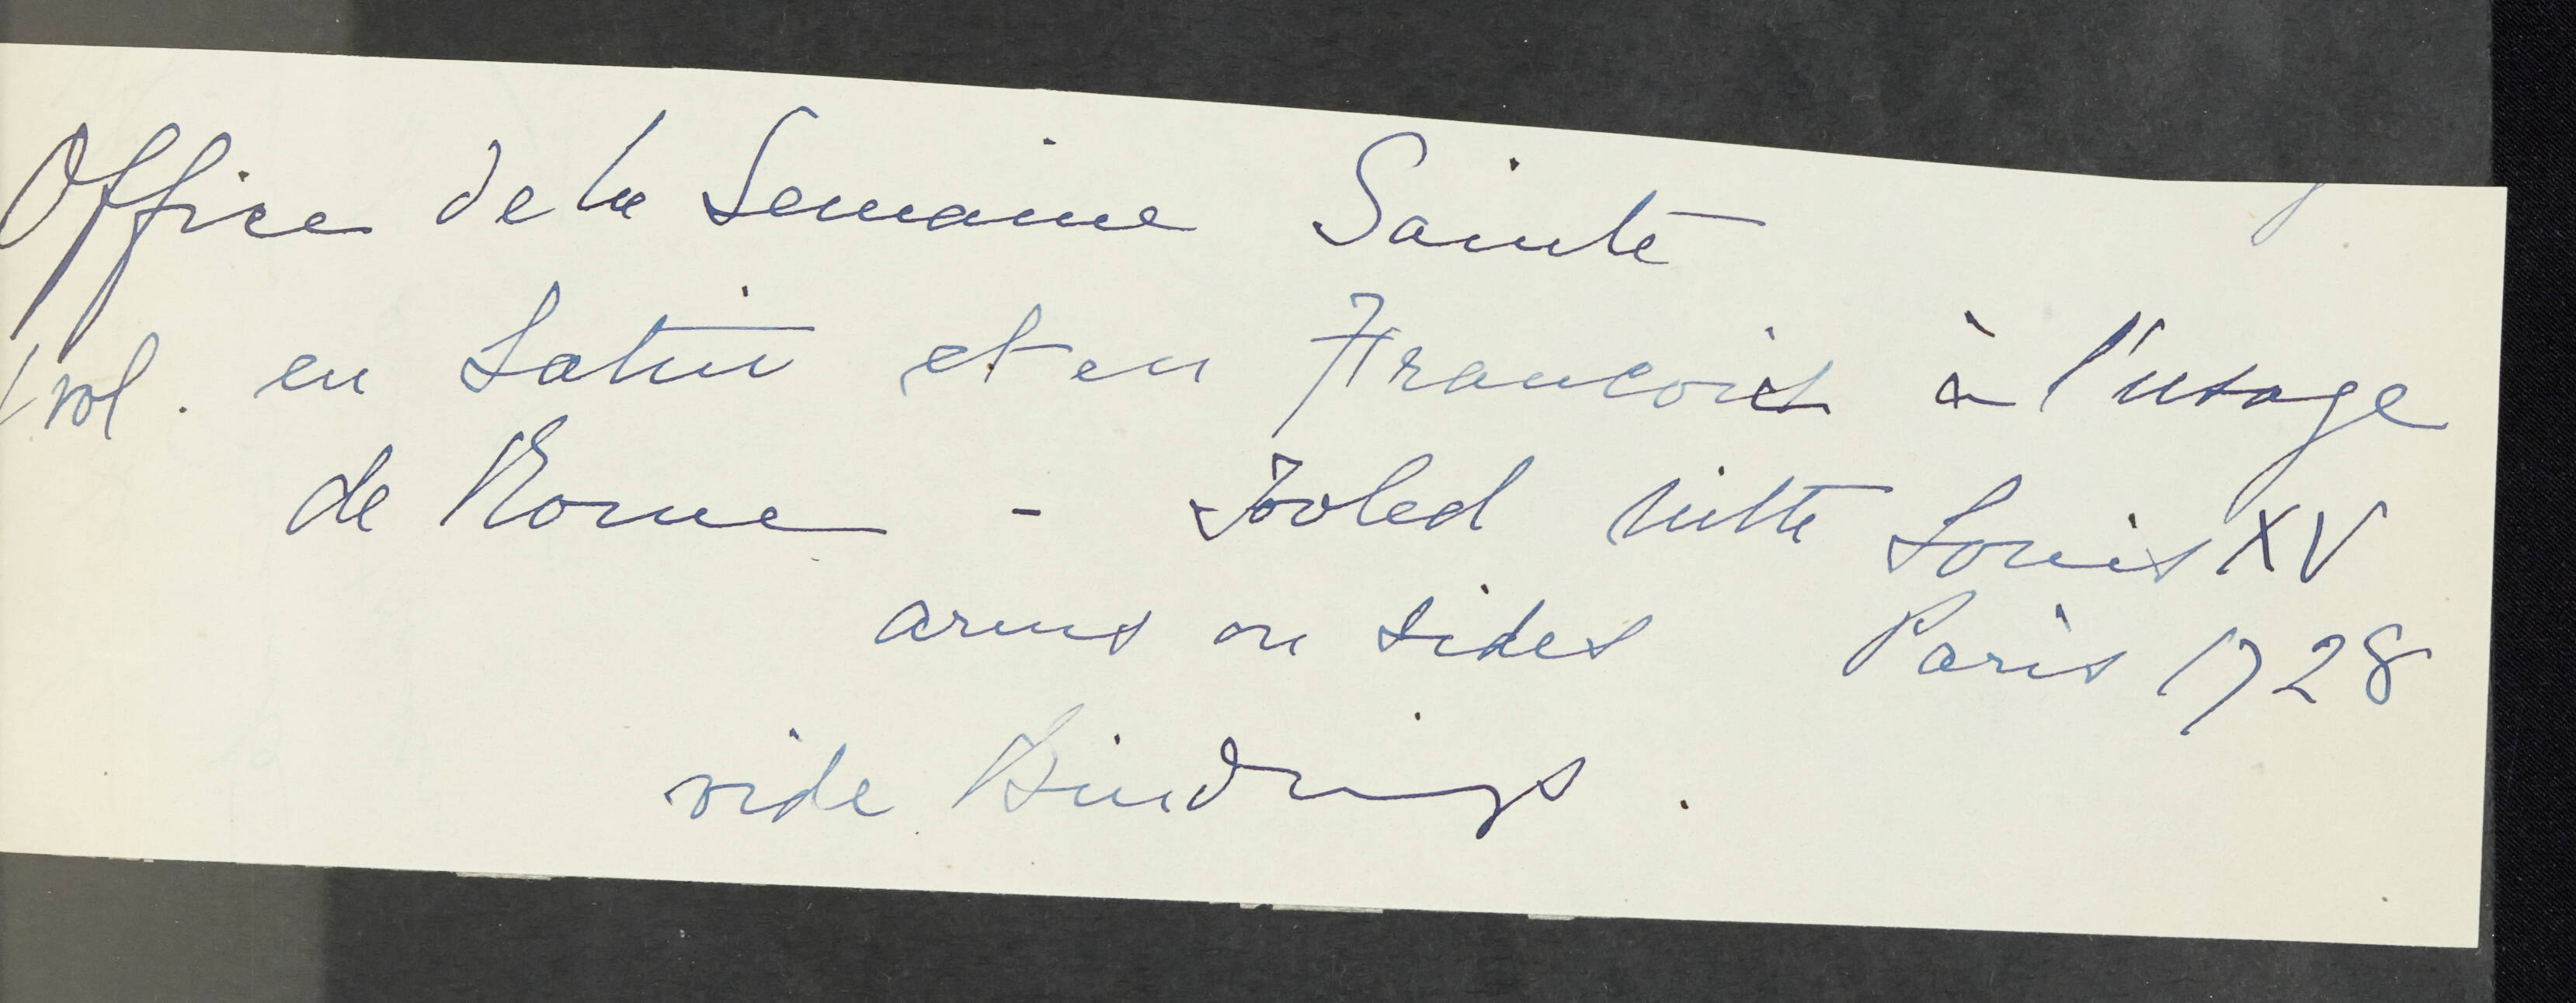 Office de la Semaine Sainte
1 vol. en Latin et en Francois à l'usage
de Rome - Tooled with Louis XV
arms on sides Paris 1728
vide Bindings.